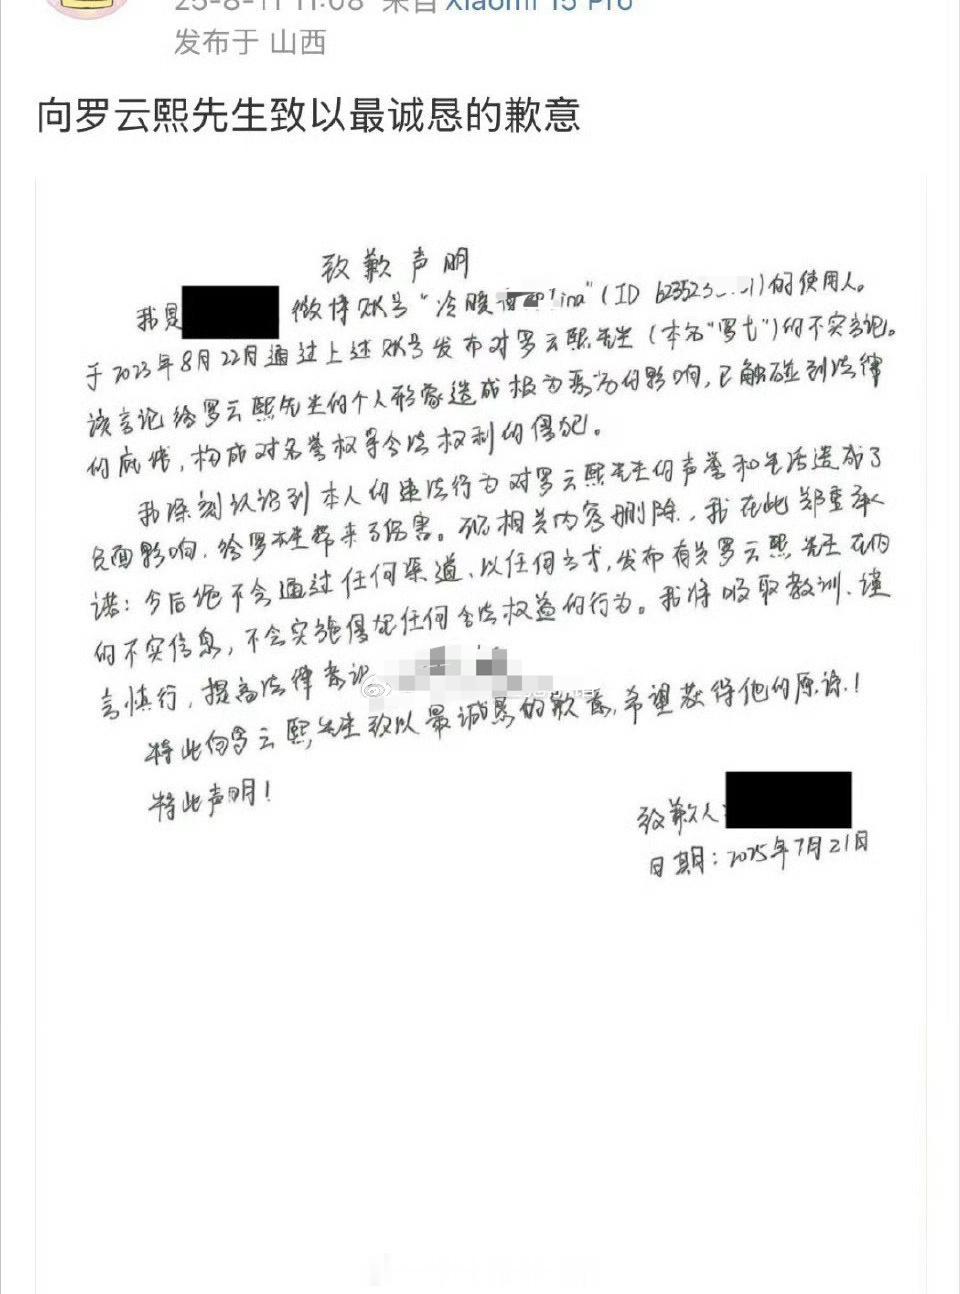 25-8-11 11:08 来自 Xiaomi 15 Pro
发布于 山西
向罗云熙先生致以最诚恳的歉意
致歉声明
我是 微博账号“冷暖 Tina”(ID 62352 1)的使用人。
于2023年8月22日通过上述账号发布对罗云熙先生(本名“罗弋”)的不实言论。
该言论给罗云熙先生的个人形象造成极为恶劣的影响,已触碰到法律
的底线,构成对名誉权等合法权利的侵犯。
我深刻认识到本人的违法行为对罗云熙先生的声誉和生活造成了
负面影响,给罗先生带来了伤害。现相关内容删除,我在此郑重承
诺:今后绝不会通过任何渠道、以任何方式,发布有关罗云熙先生在内
的不实信息,不会实施侵犯任何合法权益的行为。我将吸取教训、谨
言慎行,提高法律意识
特此向罗云熙先生致以最诚恳的歉意,希望获得他的原谅!
特此声明!
致歉人:
日期:2025年7月21日